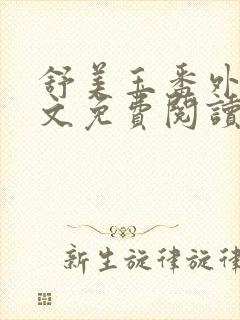 舒美玉番外
文免費閱讀
新生旋律旋律